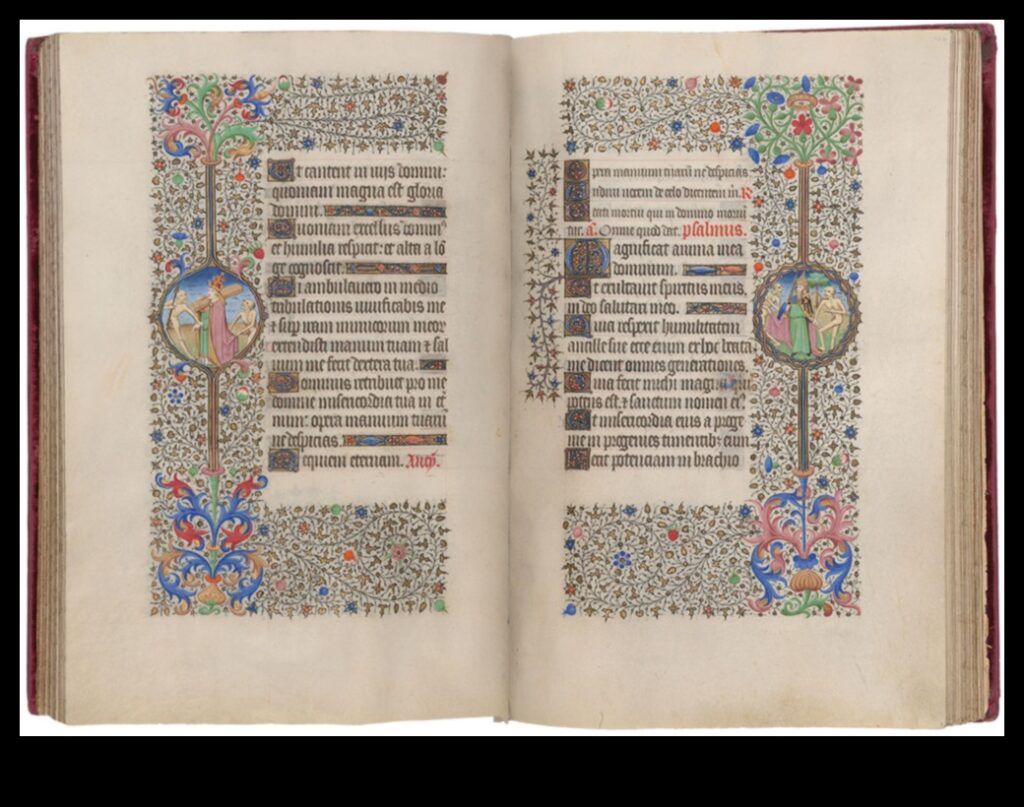 Et cantent in vijs domini:
quoniam magna est gloria
domini.
Quoniam excelsus domin⁹
et humilia respicit: et alta a lō
ge cognoscit.
Si ambulavero in medio
tribulationis vivificabis me
et sup iram inimicorum meor
extendisti manum tuam et sal
vum me fecit dextera tua.
Dominus retribuet pro me
domine misericordia tua in et
num: opera manuum tuarū
ne despicias.
Requiem eternam.
Opera manuum tuarū ne despicias.
Audivi vocem de celo dicentem m̄. R
Beati mortui qui in domino moriū
tur. a. Omne quod dat. psalmus.
Magnificat anima mea
dominum.
Et exultavit spiritus meus,
in deo salutari meo.
Quia respexit humilitatem
ancille sue ecce enim ex hoc beatā
me dicent omnes generationes.
Quia fecit michi magna qui
potens est, et sanctum nomen ei⁹
Et misericordia eius a proge
nie in progenies timentibꝫ eum
Fecit potenciam in brachio